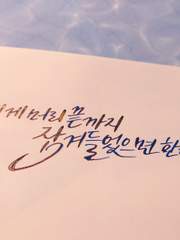 머리끝까지
잠겨들었으면